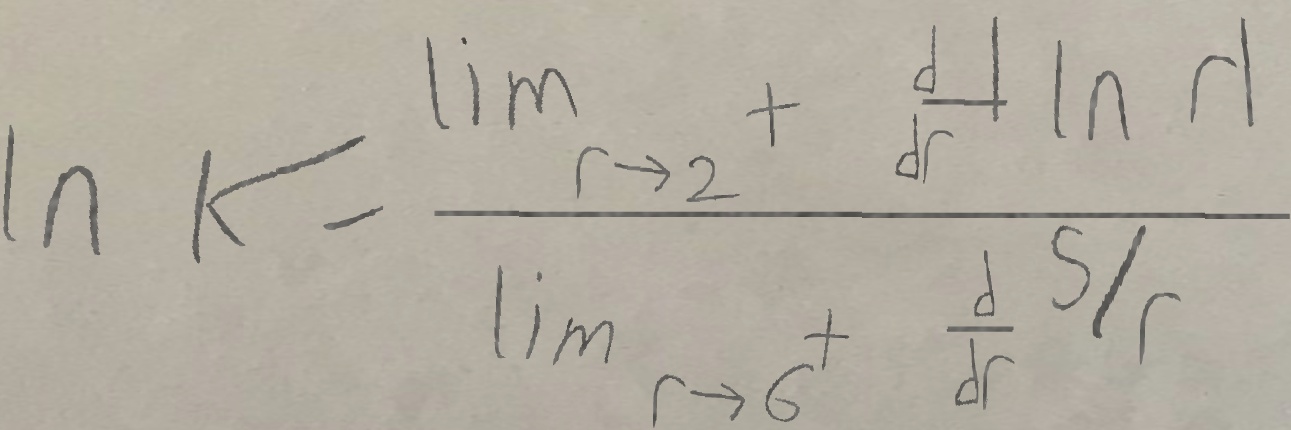 ln K = \frac{\lim_{r \to 2^+} \frac{d}{dr} |\ln r|}{\lim_{r \to 6^+} \frac{d}{dr} 5/r}